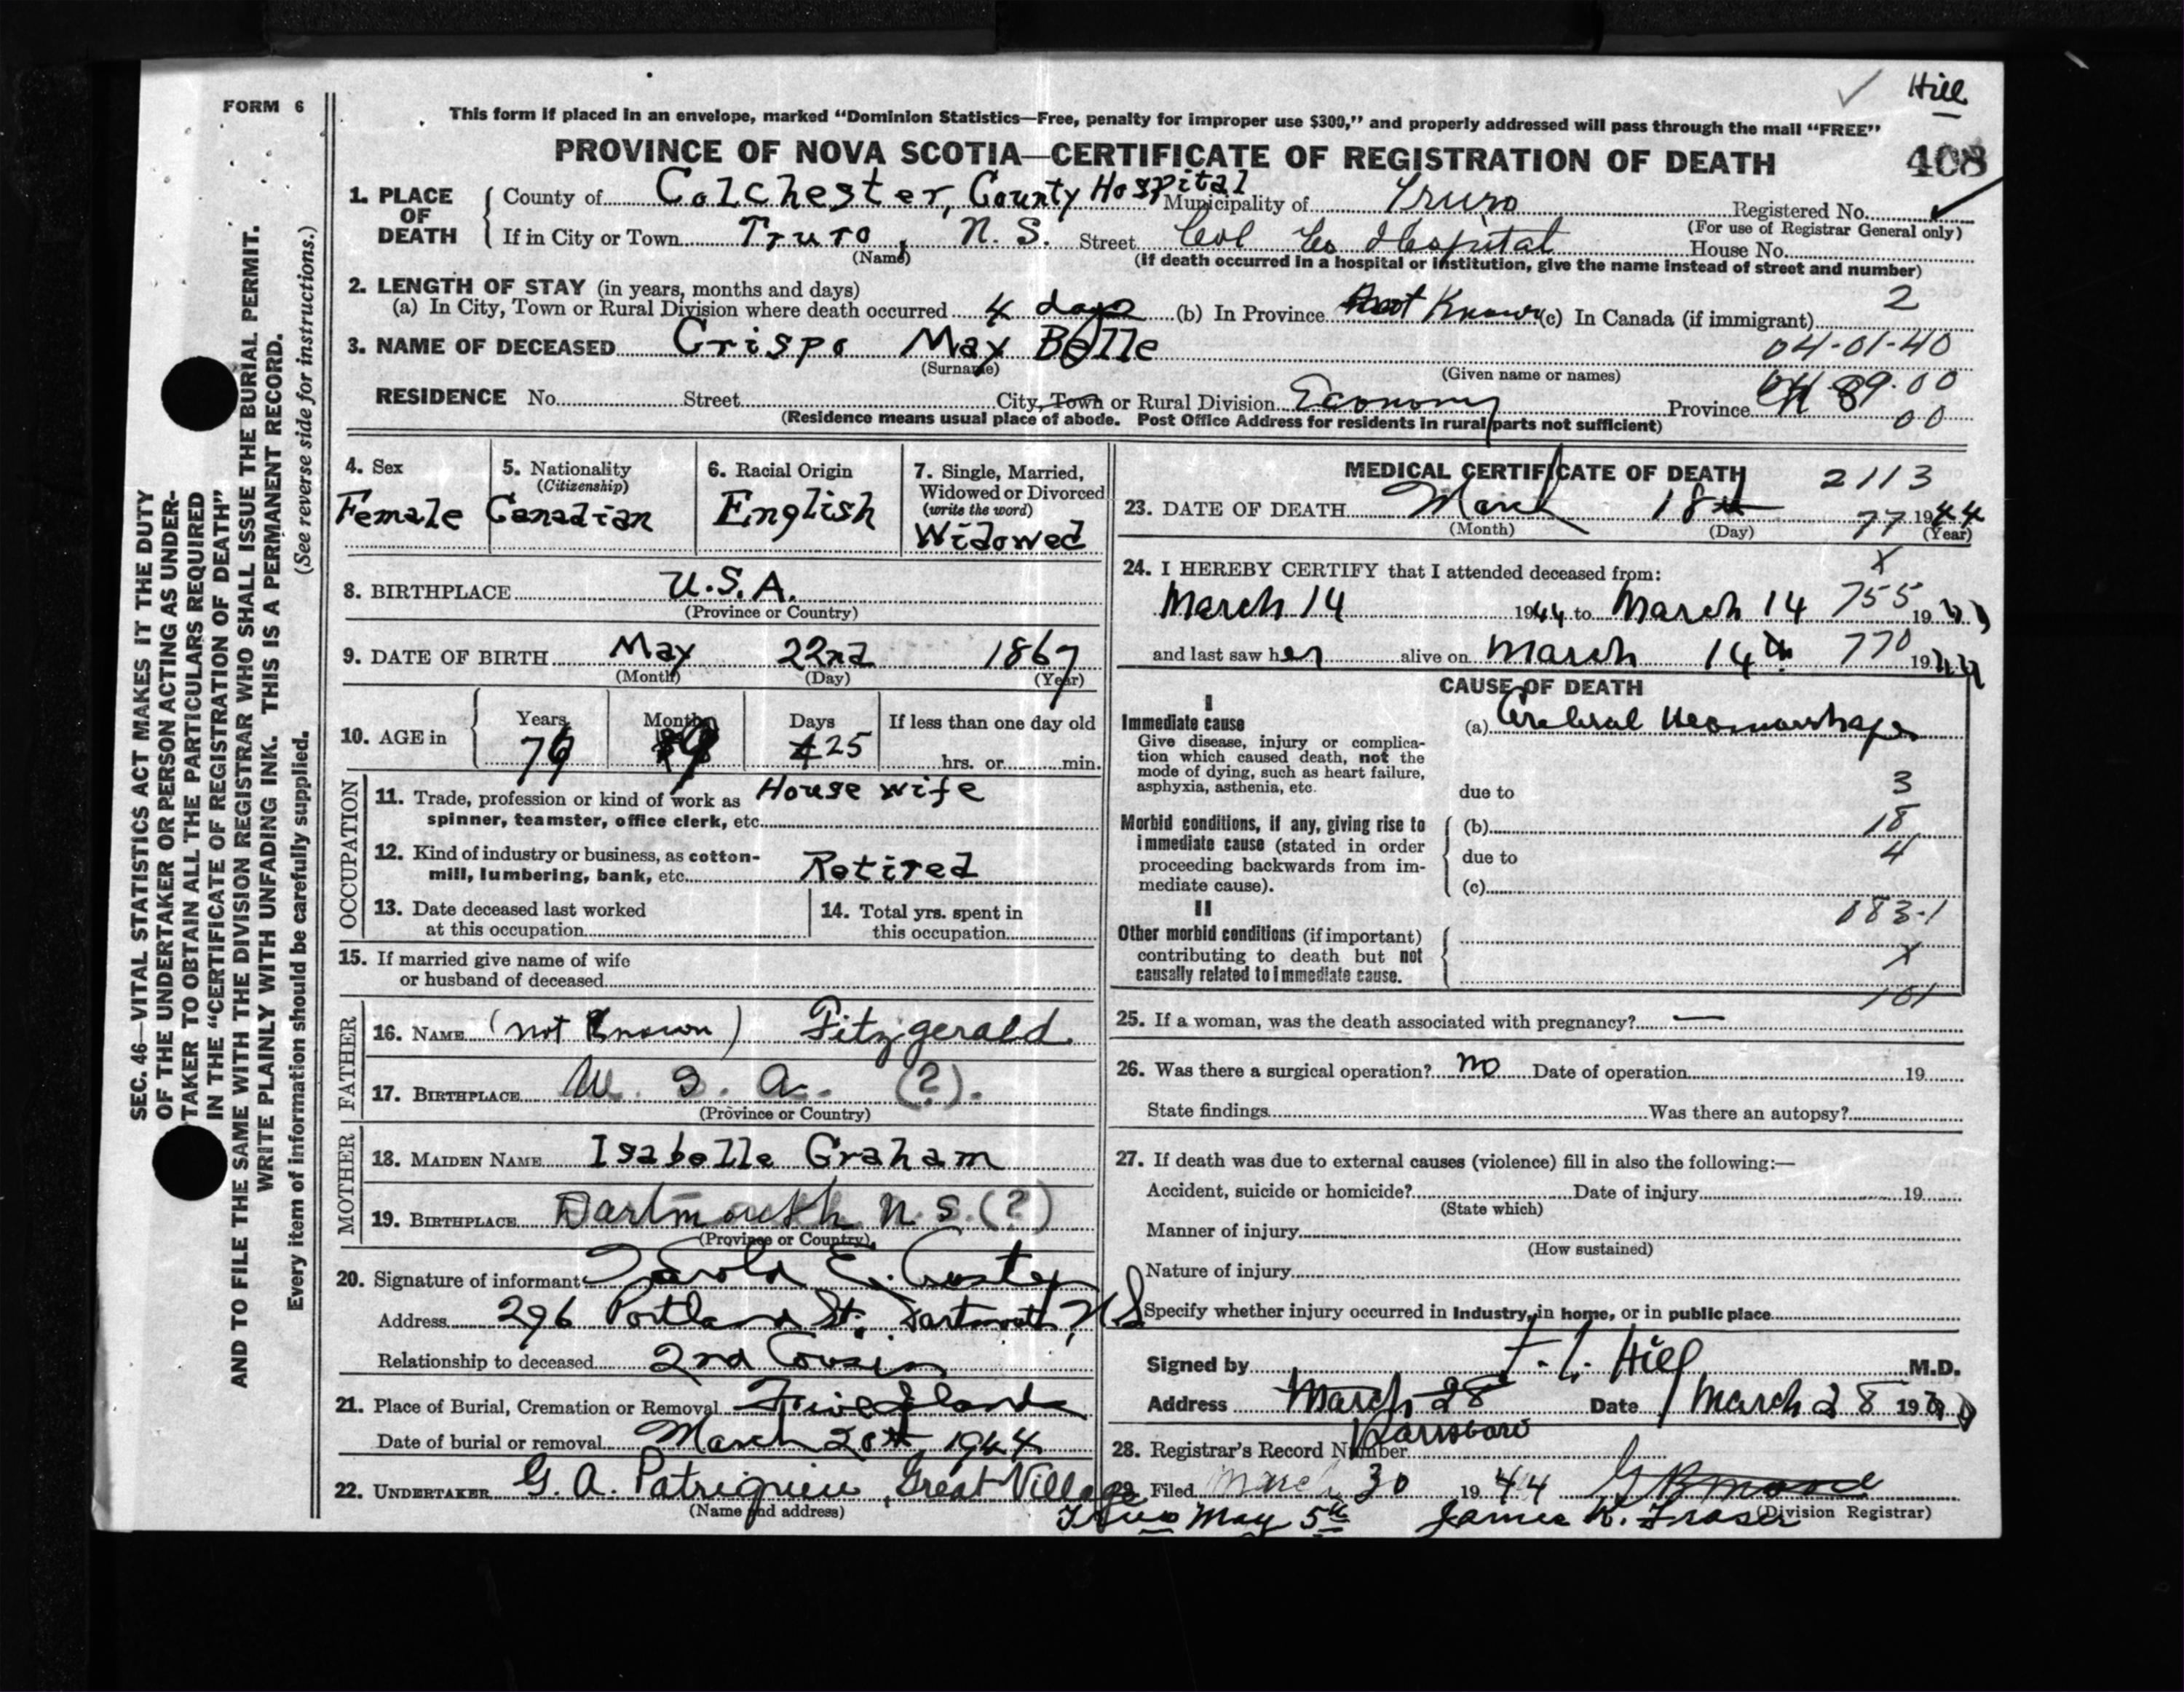 Hill
FORM 6
This form if placed in an envelope, marked "Dominion Statistics—Free, penalty for improper use $300," and properly addressed will pass through the mail "FREE"
PROVINCE OF NOVA SCOTIA—CERTIFICATE OF REGISTRATION OF DEATH
408
1. PLACE OF DEATH
County of Colchester, County Hospital Municipality of Truro Registered No.
(For use of Registrar General only)
If in City or Town Truro, N. S. Street Col Co Hospital House No.
(Name) (If death occurred in a hospital or institution, give the name instead of street and number)
2. LENGTH OF STAY (in years, months and days)
(a) In City, Town or Rural Division where death occurred 4 days (b) In Province Not Known (c) In Canada (if immigrant) 2
3. NAME OF DECEASED Crispo May Belle 04-01-40
(Surname) (Given name or names)
RESIDENCE No. Street City, Town or Rural Division Economy Province 89.00
00
(Residence means usual place of abode. Post Office Address for residents in rural parts not sufficient)
4. Sex
Female
5. Nationality
(Citizenship)
Canadian
6. Racial Origin
English
7. Single, Married,
Widowed or Divorced
(write the word)
Widowed
8. BIRTHPLACE U.S.A.
(Province or Country)
9. DATE OF BIRTH May 22nd 1867
(Month) (Day) (Year)
10. AGE in
Years 76
Months 9
Days 25
If less than one day old
hrs. or min.
OCCUPATION
11. Trade, profession or kind of work as House wife
spinner, teamster, office clerk, etc.
12. Kind of industry or business, as cotton-
mill, lumbering, bank, etc. Retired
13. Date deceased last worked
at this occupation
14. Total yrs. spent in
this occupation
15. If married give name of wife
or husband of deceased
FATHER
16. NAME (not known) Fitzgerald
17. BIRTHPLACE U. S. A. (?).
(Province or Country)
MOTHER
18. MAIDEN NAME Isabelle Graham
19. BIRTHPLACE Dartmouth N. S. (?)
(Province or Country)
20. Signature of informant E.
Address 296 Portland St., Dartmouth, N.S
Relationship to deceased 2nd Cousin
21. Place of Burial, Cremation or Removal Five Islands
Date of burial or removal March 20th, 1944
22. UNDERTAKER G. A. Patriquin, Great Village
(Name and address)
MEDICAL CERTIFICATE OF DEATH 2113
23. DATE OF DEATH March 18th 77 1944
(Month) (Day) (Year)
X
24. I HEREBY CERTIFY that I attended deceased from:
March 14 1944 to March 14 755 1944
and last saw her alive on March 14th 770 1944
CAUSE OF DEATH
I
Immediate cause
Give disease, injury or complica-
tion which caused death, not the
mode of dying, such as heart failure,
asphyxia, asthenia, etc.
(a) Cerebral Heomorrhage
due to 3
Morbid conditions, if any, giving rise to
immediate cause (stated in order
proceeding backwards from im-
mediate cause).
(b) 18
due to 4
(c)
II
Other morbid conditions (if important)
contributing to death but not
causally related to immediate cause.
083-1
X
101
25. If a woman, was the death associated with pregnancy? —
26. Was there a surgical operation? no Date of operation 19
State findings Was there an autopsy?
27. If death was due to external causes (violence) fill in also the following:—
Accident, suicide or homicide? Date of injury 19
(State which)
Manner of injury
(How sustained)
Nature of injury
Specify whether injury occurred in Industry, in home, or in public place
Signed by F. L. Hill M.D.
Address March 28 Date March 28 1944
Parrsboro
28. Registrar's Record Number
29. Filed March 30 1944
(Division Registrar)
Truro May 5th James K. Fraser
SEC. 46—VITAL STATISTICS ACT MAKES IT THE DUTY
OF THE UNDERTAKER OR PERSON ACTING AS UNDER-
TAKER TO OBTAIN ALL THE PARTICULARS REQUIRED
IN THE "CERTIFICATE OF REGISTRATION OF DEATH"
AND TO FILE THE SAME WITH THE DIVISION REGISTRAR WHO SHALL ISSUE THE BURIAL PERMIT.
WRITE PLAINLY WITH UNFADING INK. THIS IS A PERMANENT RECORD.
Every item of information should be carefully supplied.
(See reverse side for instructions.)